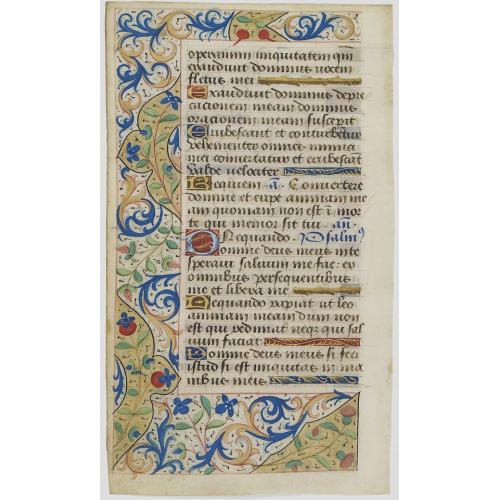 operamini iniquitatem qm
exaudivit dominus vocem
fletus mei
Exaudivit dominus depre
cacionem meam dominus
oracionem meam suscepit
Erubescant et conturbētur
vehementer omnes inimici
mei convertatur et erubescāt
valde velociter
Requiem añ. Convertere
domine et eripe animam me
am quoniam non est ī mor
te qui memor sit tui an.
Ne quando. Psalmꝰ
Domine deus meus in te
speravi salvum me fac: ex
omnibus persequentibus
me et libera me
Nequando rapiat ut leo
animam meam dum non
est qui redimat neqz qui sal
vum faciat
Domine deus meus si feci
istud si est iniquitas in ma
nibus meis